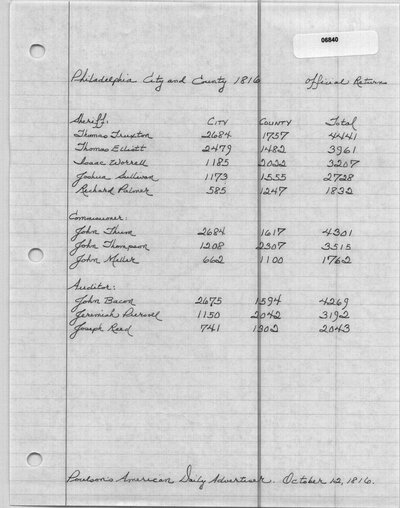 06840
Philadelphia City and County 1816 Official Return
Sheriff: City County Total
Thomas Truxton 2684 1757 4441
Thomas Elliott 2479 1482 3961
Isaac Worrell 1185 2022 3207
Joshua Sullivan 1173 1555 2728
Richard Palmer 585 1247 1832
Commissioner:
John Thum 2684 1617 4301
John Thompson 1208 2307 3515
John Miller 662 1100 1762
Auditor:
John Bacon 2675 1594 4269
Jeremiah Peirsol 1150 2042 3192
Joseph Reed 741 1302 2043
Poulson's American Daily Advertiser. October 12, 1816.